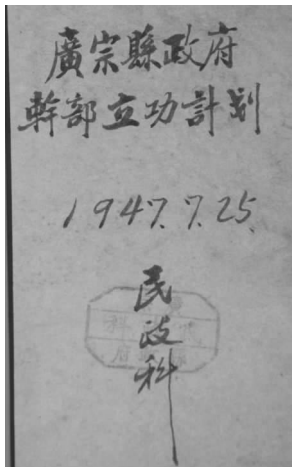 廣宗縣政府
幹部立功計划
1947.7.25.
民政科